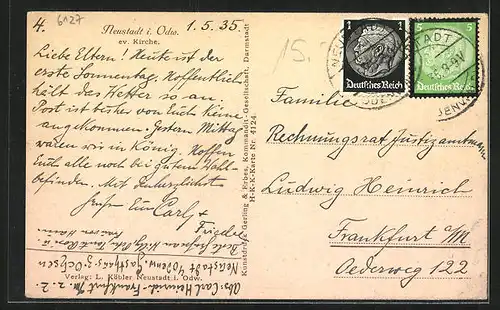 4. 6127
Neustadt i. Odw. 1.5.35.
ev. Kirche.
Liebe Eltern! Heute ist der
erste Sonnentag. Hoffentlich
hält das Wetter so an.
Post ist bisher von Euch keine
angekommen. Gestern Mittag
waren wir in König. Hoffen
Euch alle noch bei gutem Wohl-
befinden. Mit herzlichst
Gruss Eure Carl, +
Friedel
Abs: Carl Heinrich Frankfurt M. z. Z.
Neustadt Odenw. Gasthaus z. Ochsen
Verlag: L. Käbler Neustadt i. Odw.
Kunstdruck Gerling & Erbes, Kommandit-Gesellschaft, Darmstadt
H-K-K-Karte Nr. 4124.
15.
1
Deutsches Reich
5
Deutsches Reich
Familie
Rechnungsrat Justizamtmann
Ludwig Heinrich
Frankfurt a/M
Oederweg 122